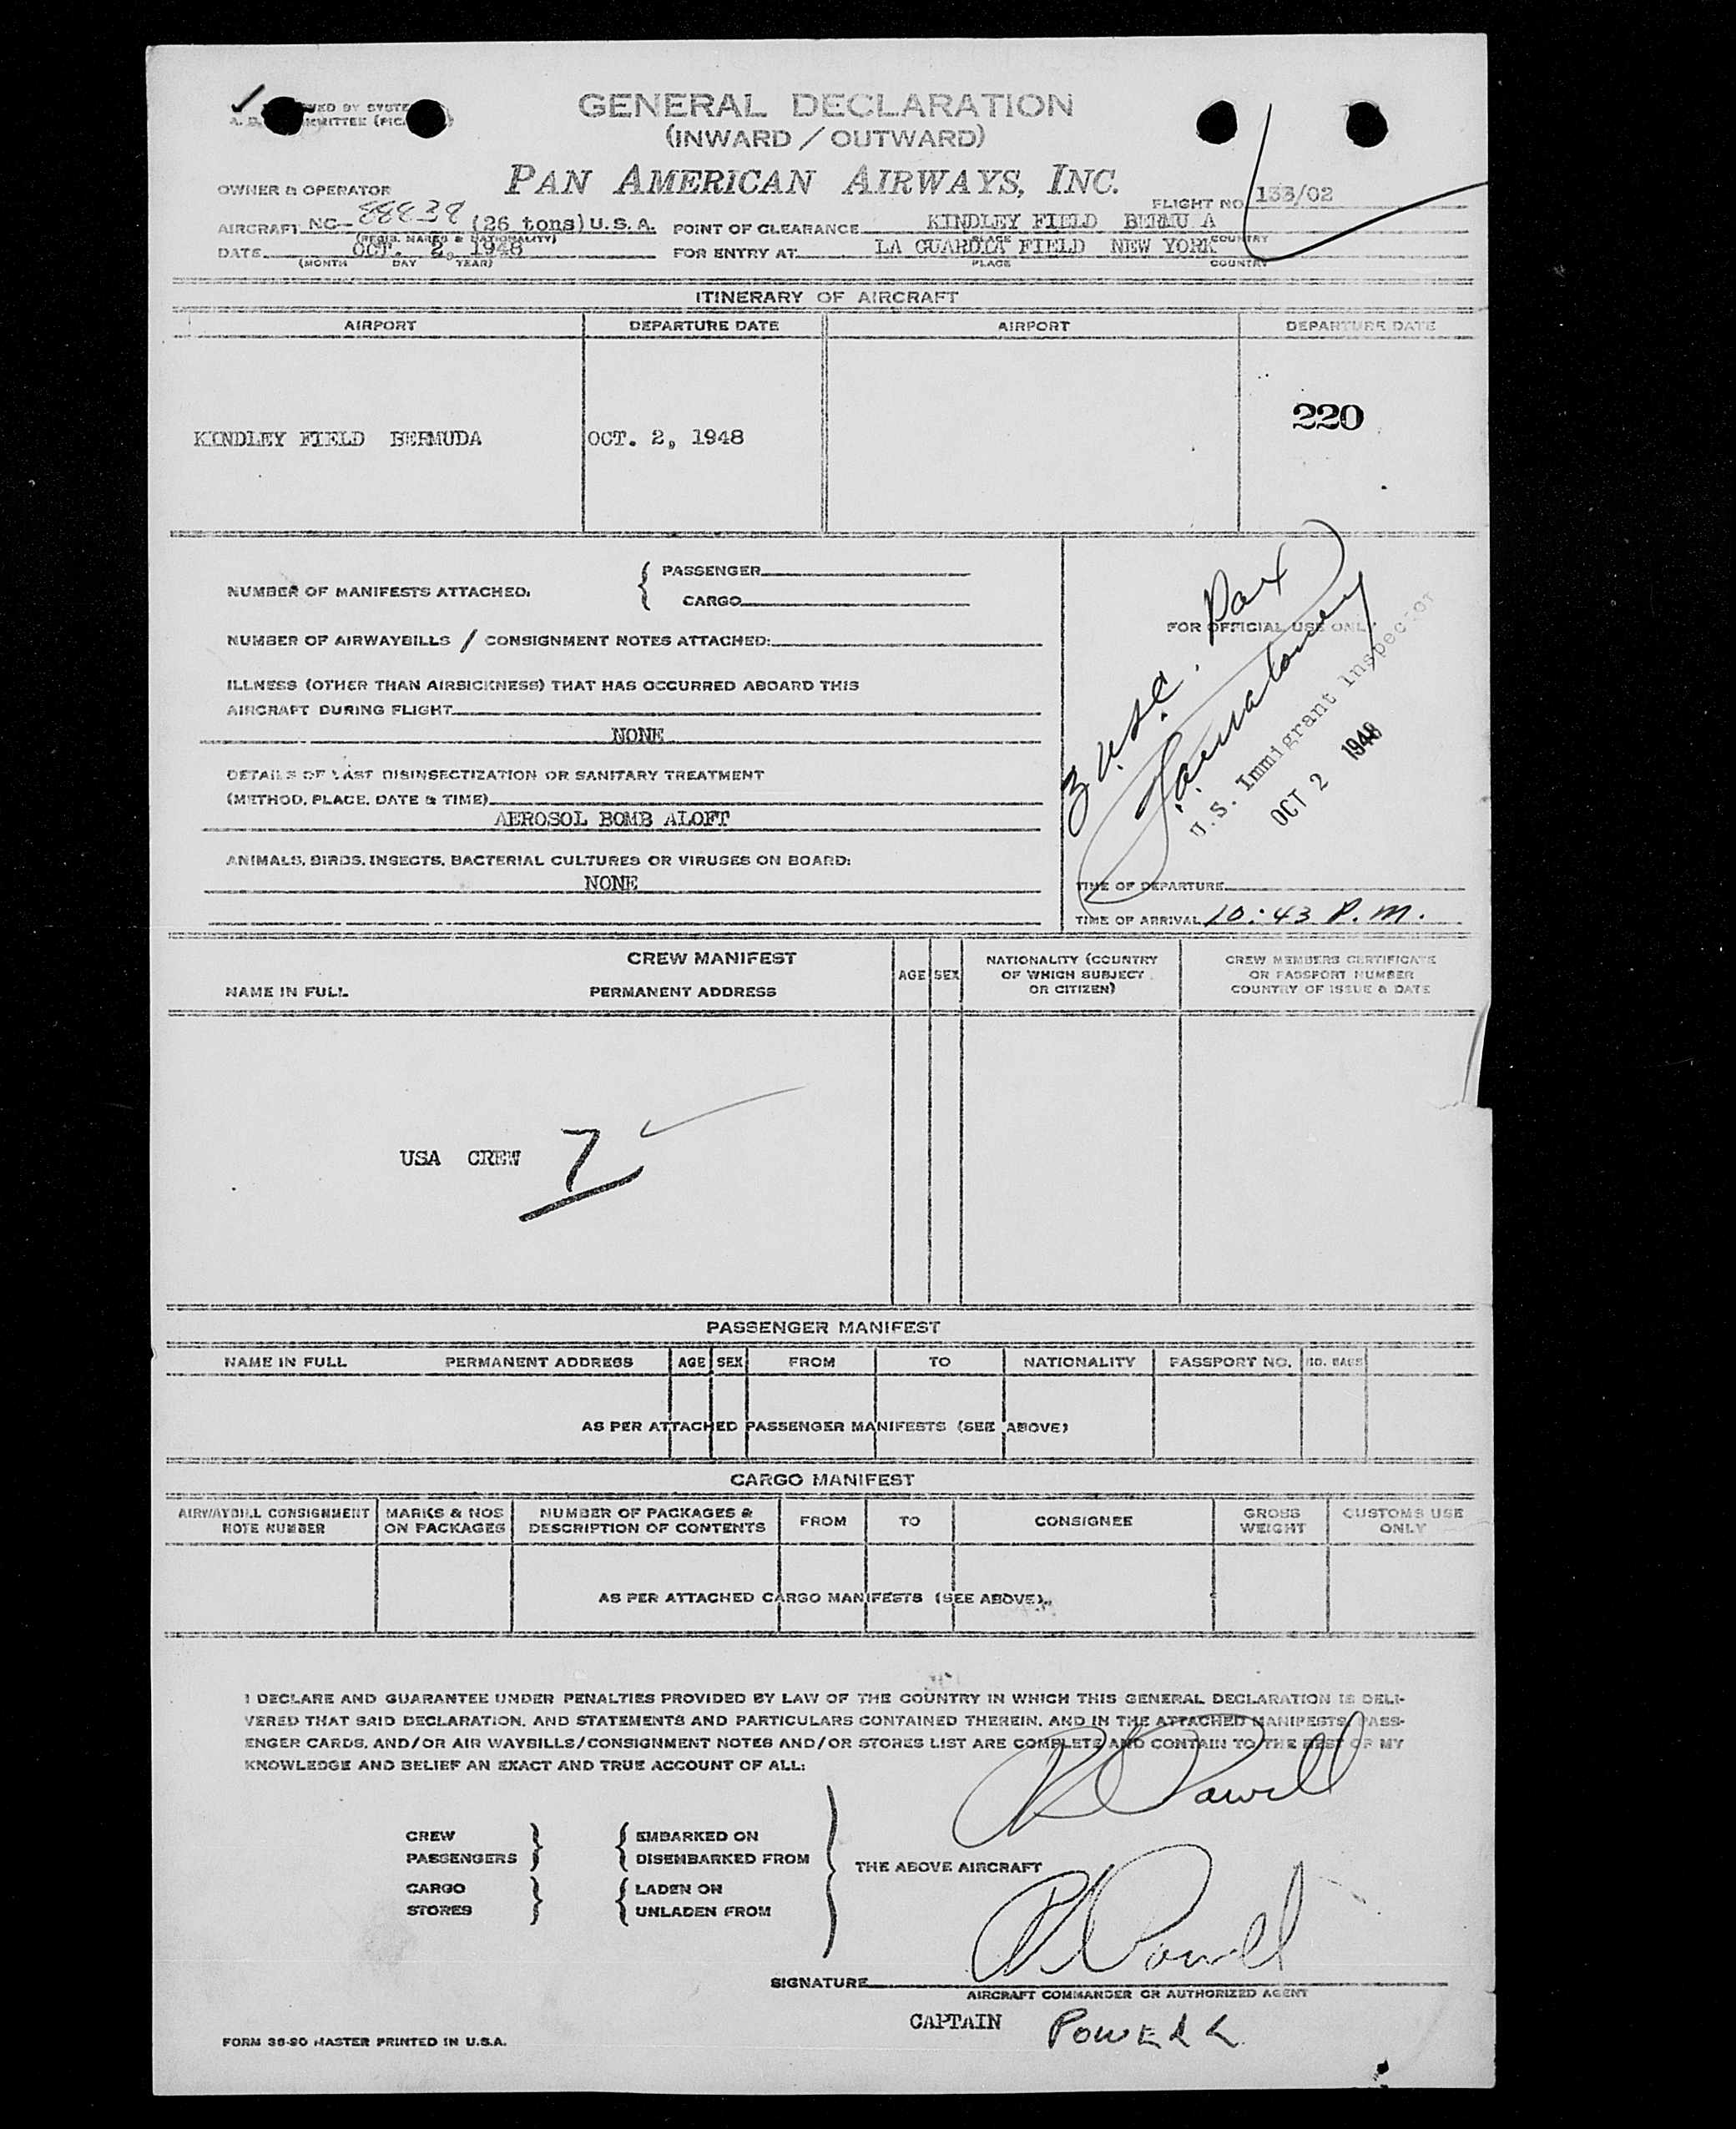 GENERAL DECLARATION
(INWARD / OUTWARD)
PAN AMERICAN AIRWAYS, INC.
OWNER & OPERATOR
FLIGHT NO. 133/02
AIRCRAFT NC- 88838 (26 tons) U.S.A. POINT OF CLEARANCE KINDLEY FIELD BERMU A
(REGIS. MARKS & NATIONALITY) PLACE COUNTRY
DATE OCT. 2, 1948 FOR ENTRY AT LA GUARDIA FIELD NEW YORK
(MONTH DAY YEAR) PLACE COUNTRY
ITINERARY OF AIRCRAFT
AIRPORT DEPARTURE DATE AIRPORT DEPARTURE DATE
220
KINDLEY FIELD BERMUDA OCT. 2, 1948
NUMBER OF MANIFESTS ATTACHED: { PASSENGER
CARGO
NUMBER OF AIRWAYBILLS / CONSIGNMENT NOTES ATTACHED:
ILLNESS (OTHER THAN AIRSICKNESS) THAT HAS OCCURRED ABOARD THIS
AIRCRAFT DURING FLIGHT
NONE
DETAILS OF LAST DISINSECTIZATION OR SANITARY TREATMENT
(METHOD, PLACE, DATE & TIME)
AEROSOL BOMB ALOFT
ANIMALS, BIRDS, INSECTS, BACTERIAL CULTURES OR VIRUSES ON BOARD:
NONE
FOR OFFICIAL USE ONLY
3 U.S.C. Pax
U.S. Immigrant Inspector
OCT 2 1948
TIME OF DEPARTURE
TIME OF ARRIVAL 10:43 P.M.
CREW MANIFEST
NAME IN FULL PERMANENT ADDRESS AGE SEX NATIONALITY (COUNTRY OF WHICH SUBJECT OR CITIZEN) CREW MEMBERS CERTIFICATE OR PASSPORT NUMBER COUNTRY OF ISSUE & DATE
USA CREW 7
PASSENGER MANIFEST
NAME IN FULL PERMANENT ADDRESS AGE SEX FROM TO NATIONALITY PASSPORT NO. NO. BAGS
AS PER ATTACHED PASSENGER MANIFESTS (SEE ABOVE)
CARGO MANIFEST
AIRWAYBILL CONSIGNMENT NOTE NUMBER MARKS & NOS ON PACKAGES NUMBER OF PACKAGES & DESCRIPTION OF CONTENTS FROM TO CONSIGNEE GROSS WEIGHT CUSTOMS USE ONLY
AS PER ATTACHED CARGO MANIFESTS (SEE ABOVE)
I DECLARE AND GUARANTEE UNDER PENALTIES PROVIDED BY LAW OF THE COUNTRY IN WHICH THIS GENERAL DECLARATION IS DELI-
VERED THAT SAID DECLARATION, AND STATEMENTS AND PARTICULARS CONTAINED THEREIN, AND IN THE ATTACHED MANIFESTS, PASS-
ENGER CARDS, AND/OR AIR WAYBILLS/CONSIGNMENT NOTES AND/OR STORES LIST ARE COMPLETE AND CONTAIN TO THE BEST OF MY
KNOWLEDGE AND BELIEF AN EXACT AND TRUE ACCOUNT OF ALL:
Powell
CREW } { EMBARKED ON
PASSENGERS DISEMBARKED FROM
THE ABOVE AIRCRAFT
CARGO } { LADEN ON
STORES UNLADEN FROM
Powell
SIGNATURE
AIRCRAFT COMMANDER OR AUTHORIZED AGENT
CAPTAIN POWELL
FORM 36-90 MASTER PRINTED IN U.S.A.